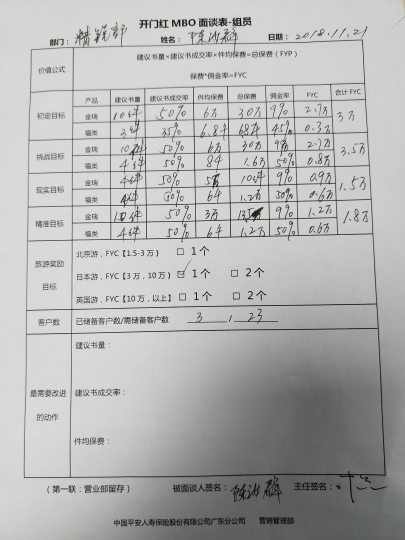 开门红 MBO 面谈表-组员
部门： 精锐部 姓名： 日期： 2018.11.21
价值公式 建议书量×建议书成交率×件均保费=总保费（FYP）
保费*佣金率=FYC
产品 建议书量 建议书成交率 件均保费 总保费 佣金率 FYC 合计 FYC
初定目标 金瑞 10件 50% 6万 30万 9% 2.7万 3万
福类 3件 35% 6.8千 6.8千 45% 0.3万
挑战目标 金瑞 50% 6万 30万 9% 2.7万 3.5万
福类 4件 50% 8千 1.6万 50% 0.8万
现实目标 金瑞 4件 50% 5万 10万 9% 0.9万 1.5万
福类 4件 50% 6千 1.2万 50% 0.6万
精准目标 金瑞 50% 3万 9% 1.2万 1.8万
福类 4件 50% 6千 1.2万 50% 0.6万
旅游奖励目标
北京游，FYC【1.5-3 万） □ 1个
日本游，FYC【3 万，10 万） ☑ 1个 □ 2个
英国游，FYC【10 万，以上） □ 1个 □ 2个
客户数 已储备客户数/需储备客户数 3 / 23
最需要改进的动作
建议书量：
建议书成交率：
件均保费：
（第一联：营业部留存） 被面谈人签名： 主任签名：
中国平安人寿保险股份有限公司广东分公司 营销管理部